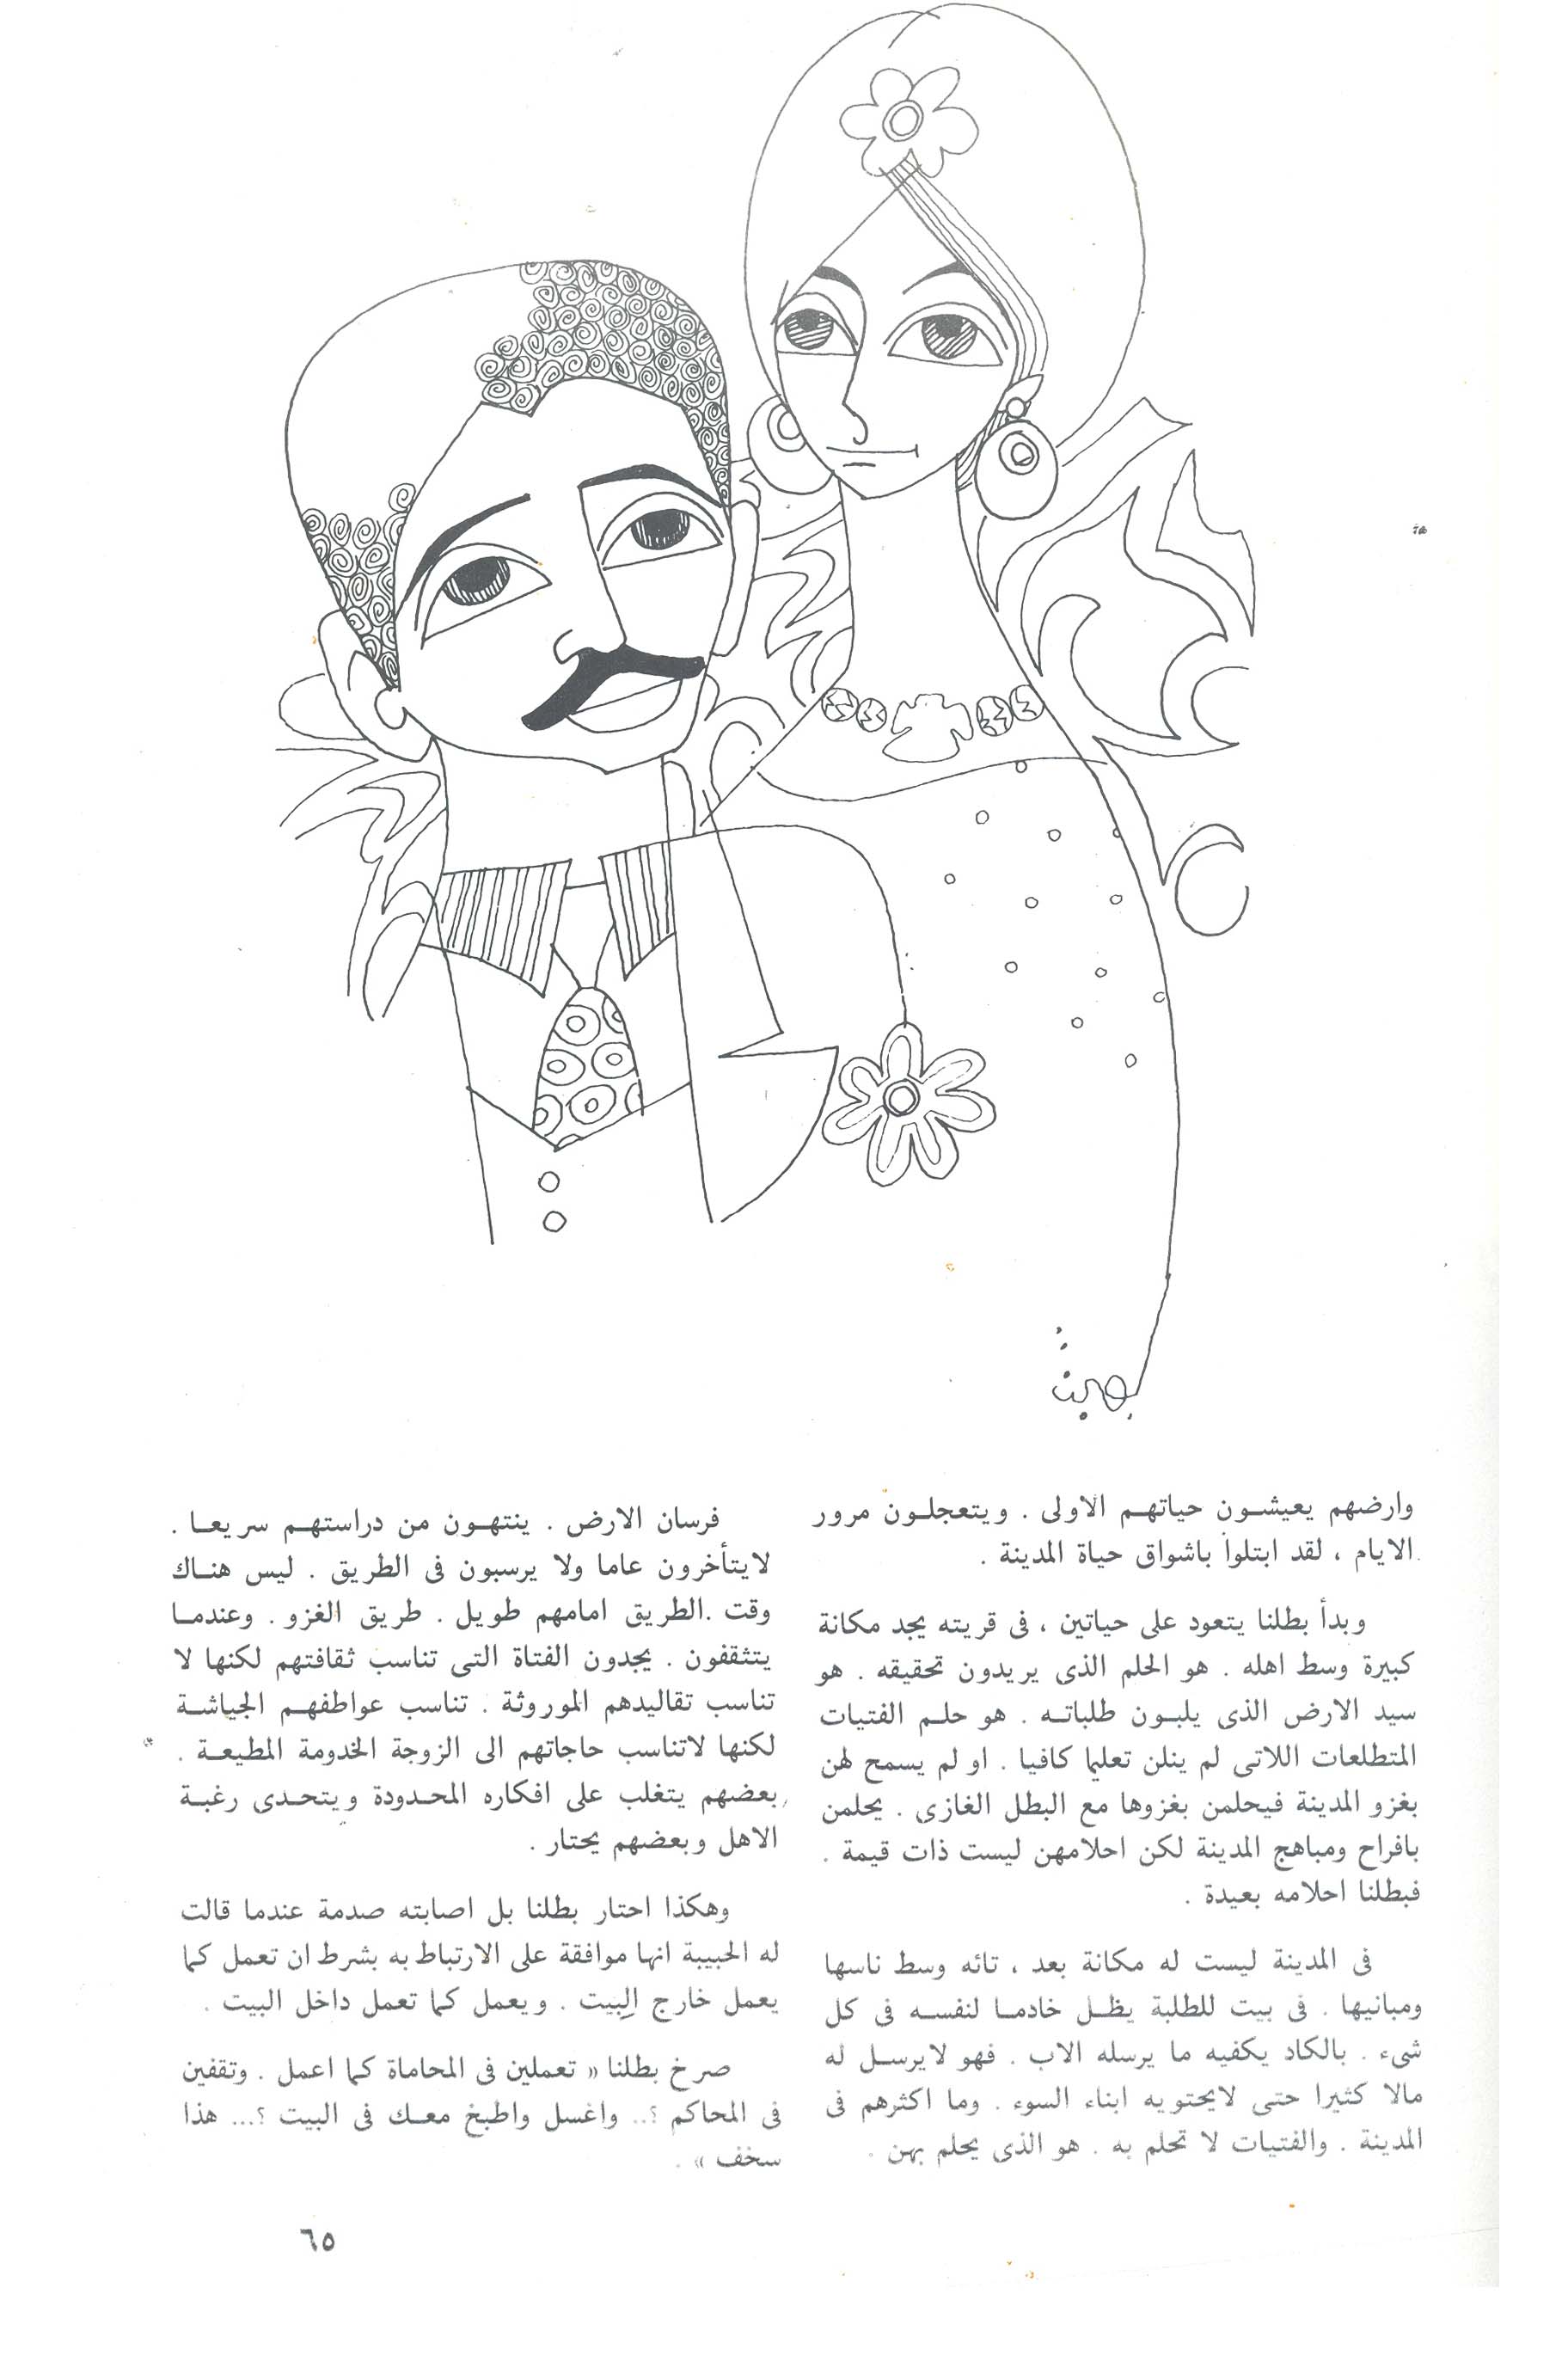 بهجت
وارضهم يعيشون حياتهم الاولى . ويتعجلون مرور
الايام ، لقد ابتلوا باشواق حياة المدينة .
وبدأ بطلنا يتعود على حياتين ، فى قريته يجد مكانة
كبيرة وسط اهله . هو الحلم الذى يريدون تحقيقه . هو
سيد الارض الذى يلبون طلباته . هو حلم الفتيات
المتطلعات اللاتى لم ينلن تعليما كافيا . او لم يسمح لهن
بغزو المدينة فيحلمن بغزوها مع البطل الغازى . يحلمن
بافراح ومباهج المدينة لكن احلامهن ليست ذات قيمة .
فبطلنا احلامه بعيدة .
فى المدينة ليست له مكانة بعد ، تائه وسط ناسها
ومبانيها . فى بيت للطلبة يظل خادما لنفسه فى كل
شىء . بالكاد يكفيه ما يرسله الاب . فهو لايرسل له
مالا كثيرا حتى لايحتويه ابناء السوء . وما اكثرهم فى
المدينة . والفتيات لا تحلم به . هو الذى يحلم بهن .
فرسان الارض . ينتهون من دراستهم سريعا .
لايتأخرون عاما ولا يرسبون فى الطريق . ليس هناك
وقت .الطريق امامهم طويل . طريق الغزو . وعندما
يتثقفون . يجدون الفتاة التى تناسب ثقافتهم لكنها لا
تناسب تقاليدهم الموروثة . تناسب عواطفهم الجياشة
لكنها لاتناسب حاجاتهم الى الزوجة الخدومة المطيعة .
بعضهم يتغلب على افكاره المحدودة ويتحدى رغبة
الاهل وبعضهم يحتار .
وهكذا احتار بطلنا بل اصابته صدمة عندما قالت
له الحبيبة انها موافقة على الارتباط به بشرط ان تعمل كما
يعمل خارج البيت . ويعمل كما تعمل داخل البيت .
صرخ بطلنا « تعملين فى المحاماة كما اعمل . وتقفين
فى المحاكم ؟.. واغسل واطبخ معك فى البيت ؟... هذا
سخف » .
٦٥